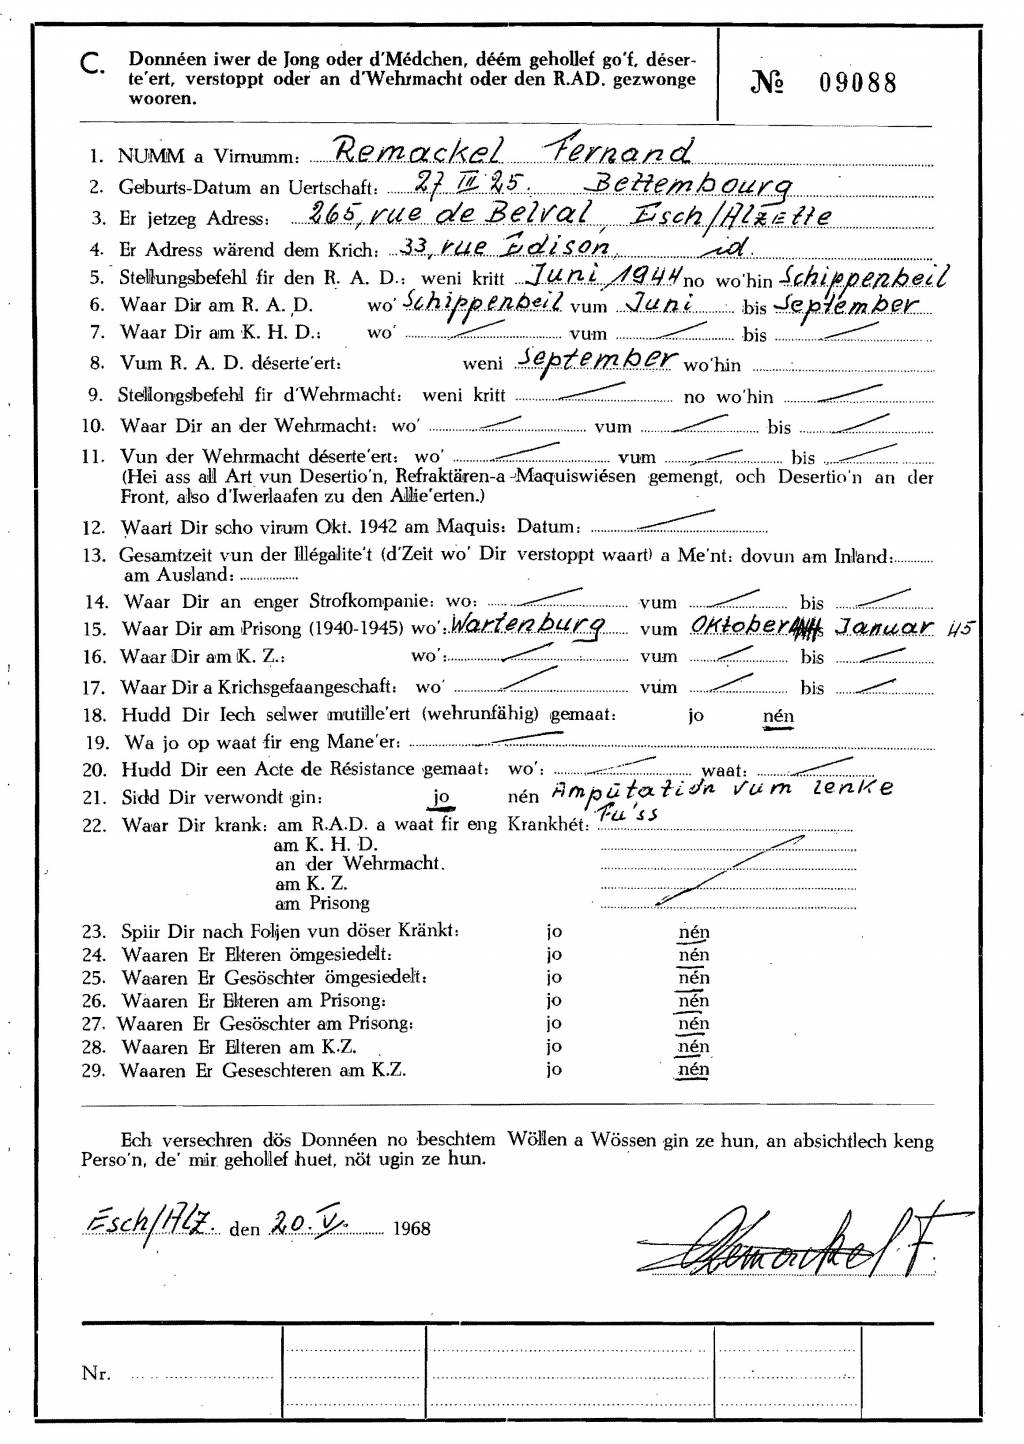 C. Donnéen iwer de Jong oder d'Médchen, déém gehollef go'f, déser-
te'ert, verstoppt oder an d'Wehrmacht oder den R.AD. gezwonge
wooren.
№ 09088
1. NUMM a Virnumm: Remackel Fernand
2. Geburts-Datum an Uertschaft: 27 III 25. Bettembourg
3. Er jetzeg Adress: 265, rue de Belval, Esch/Alzette
4. Er Adress wärend dem Krich: 33, rue Edison, id.
5. Stellungsbefehl fir den R. A. D.: weni kritt Juni 1944 no wo'hin Schippenbeil
6. Waar Dir am R. A. D. wo' Schippenbeil vum Juni bis September
7. Waar Dir am K. H. D.: wo' vum bis
8. Vum R. A. D. déserte'ert: weni September wo'hin
9. Stellongsbefehl fir d'Wehrmacht: weni kritt no wo'hin
10. Waar Dir an der Wehrmacht: wo' vum bis
11. Vun der Wehrmacht déserte'ert: wo' vum bis
(Hei ass all Art vun Desertio'n, Refraktären-a -Maquiswiésen gemengt, och Desertio'n an der
Front, also d'Iwerlaafen zu den Allie'erten.)
12. Waart Dir scho virum Okt. 1942 am Maquis: Datum:
13. Gesamtzeit vun der Illégalite't (d'Zeit wo' Dir verstoppt waart) a Me'nt: dovun am Inland:
am Ausland:
14. Waar Dir an enger Strofkompanie: wo: vum bis
15. Waar Dir am Prisong (1940-1945) wo': Wartenburg vum Oktober Januar 45
16. Waar Dir am K. Z.: wo': vum bis
17. Waar Dir a Krichsgefaangeschaft: wo' vum bis
18. Hudd Dir Iech selwer mutille'ert (wehrunfähig) gemaat: jo nén
19. Wa jo op waat fir eng Mane'er:
20. Hudd Dir een Acte de Résistance gemaat: wo': waat:
21. Sidd Dir verwondt gin: jo nén Amputation vum lenke
Fu'ss
22. Waar Dir krank: am R.A.D. a waat fir eng Krankhét:
am K. H. D.
an der Wehrmacht.
am K. Z.
am Prisong
23. Spiir Dir nach Foljen vun döser Kränkt: jo nén
24. Waaren Er Elteren ömgesiedelt: jo nén
25. Waaren Er Gesöschter ömgesiedelt: jo nén
26. Waaren Er Elteren am Prisong: jo nén
27. Waaren Er Gesöschter am Prisong: jo nén
28. Waaren Er Elteren am K.Z. jo nén
29. Waaren Er Geseschteren am K.Z. jo nén
Ech versechren dös Donnéen no beschtem Wöllen a Wössen gin ze hun, an absichtlech keng
Perso'n, de' mir gehollef huet, nöt ugin ze hun.
Esch/Alz. den 20. V. 1968
Remackel F.
Nr.